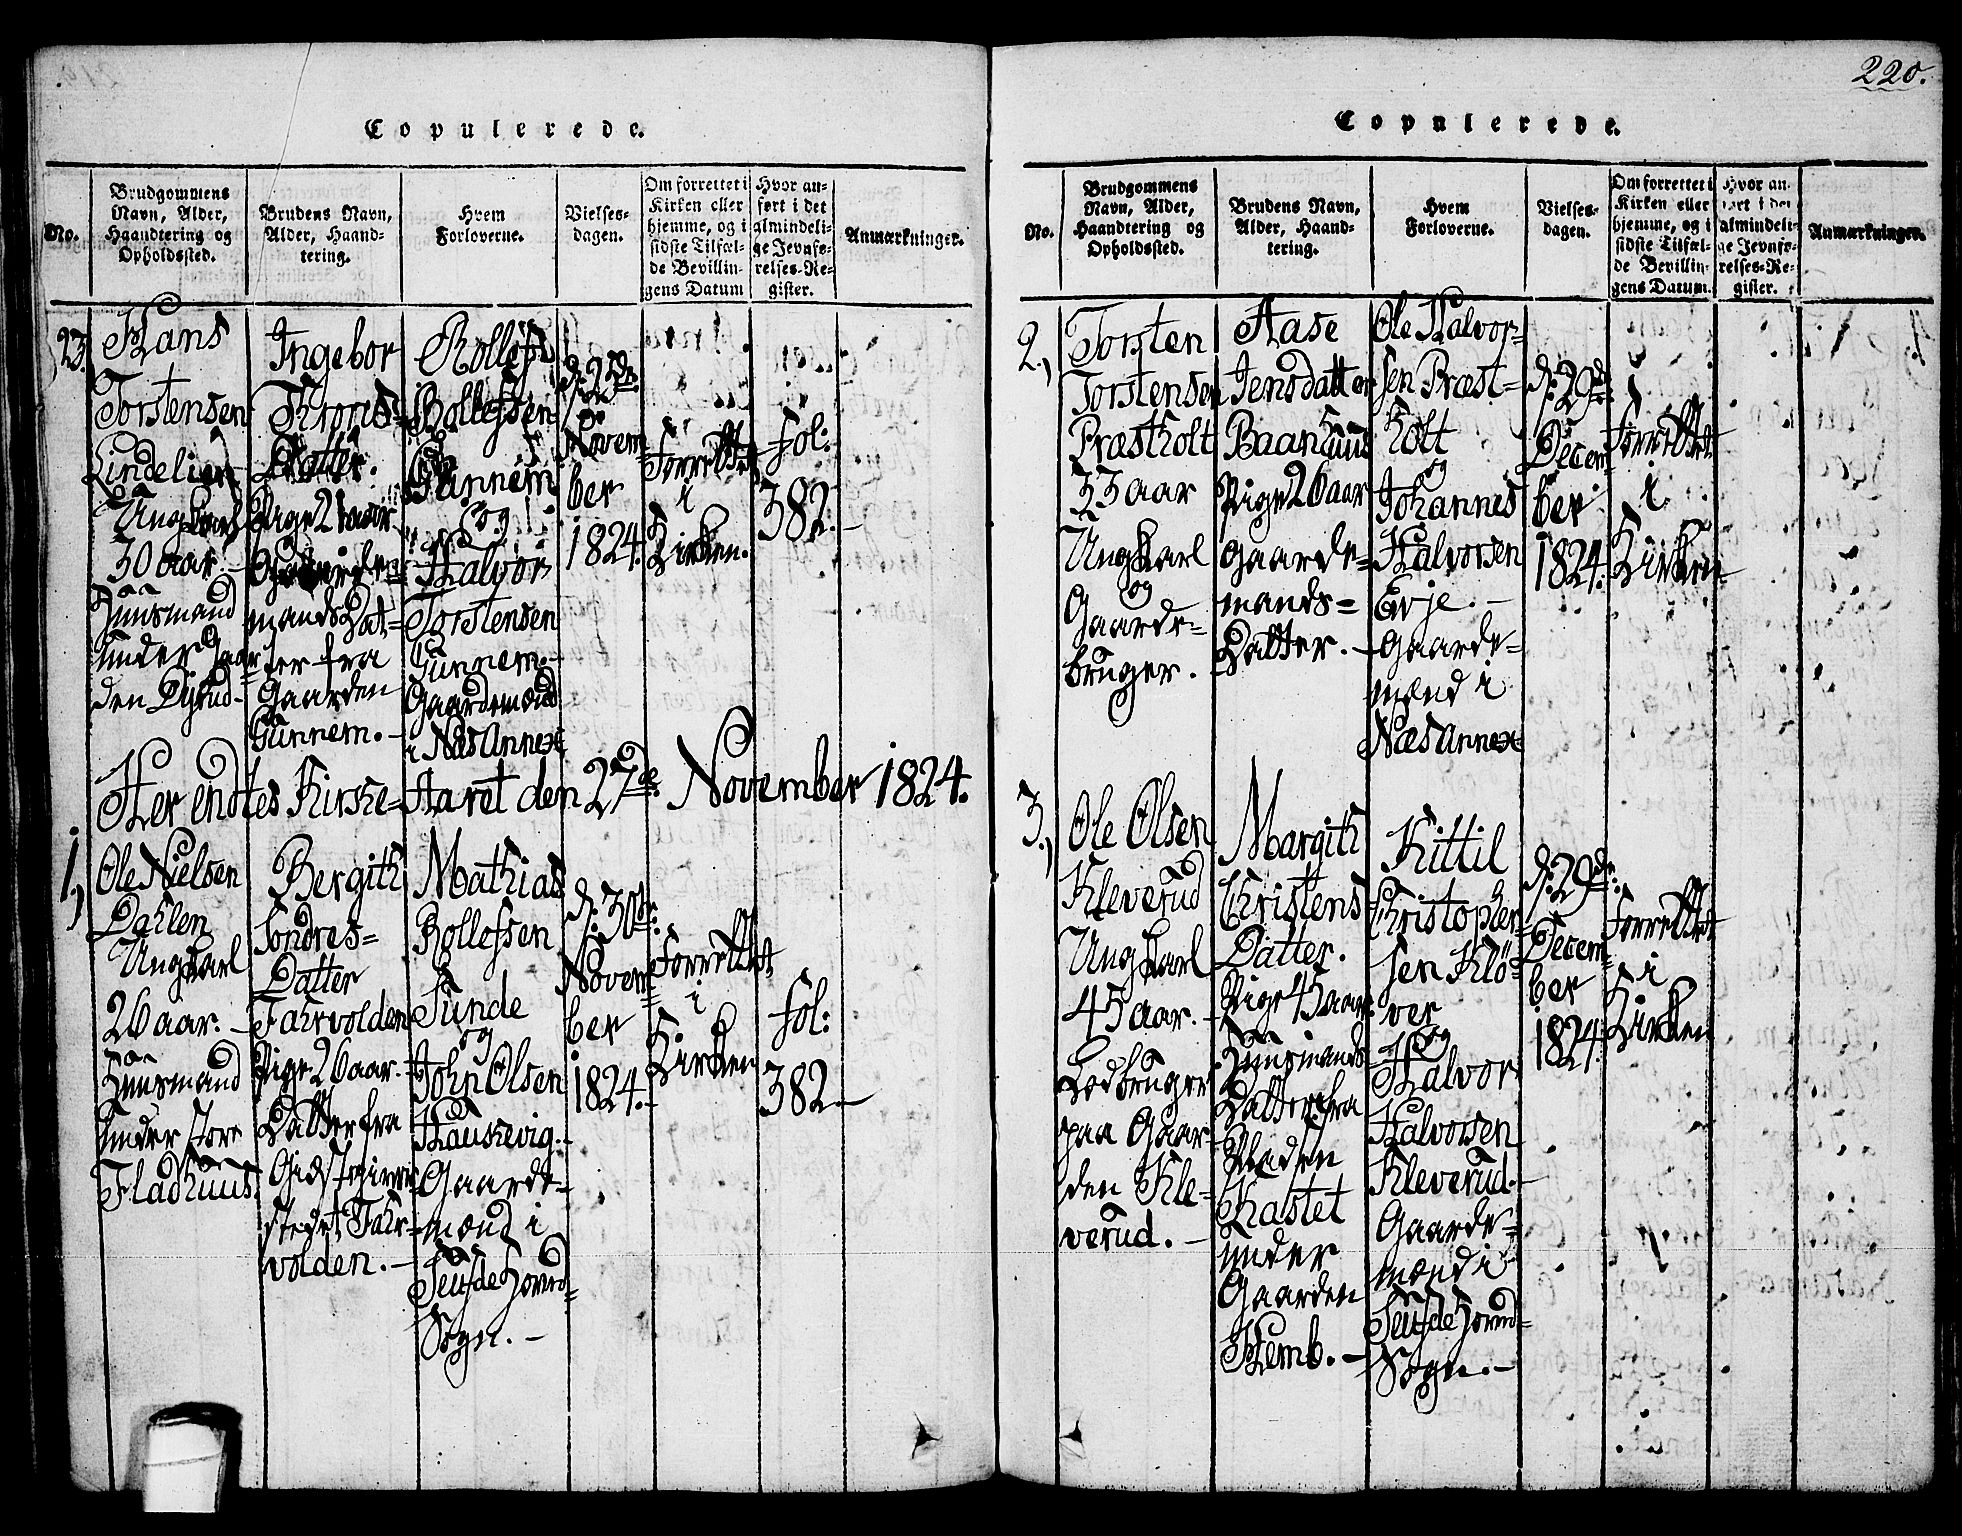 220.
Copulerede.
No.
Brudgommens
Navn, Alder,
Haandtering og
Opholdssted.
Brudens Navn,
Alder, Haand-
tering.
Hvem
Forloverne.
Vielses-
dagen.
Om forrettet i
Kirken eller
hjemme, og i
sidste Tilfæl-
de Bevillin-
gens Datum
Hvor an-
ført i det
almindeli-
ge Jevnfø-
relses-Re-
gister.
Anmærkninger.
23.
Hans
Torstensen
Lindelien
Ungkarl
30 aar.
Huusmand
under Gaar
den Disrud
Ingebor
Datter.
Pige 21 aar
mands Dat=
ter fra
Gaarden
Gunnem.-
Rollef
Rollefsen
Gunnem
og
Halvor
Torstensen
Gunnem.-
Gaardemænd
i Næs Annex
Novem
ber
1824.
Forrettet
i
Kirken.
Fol:
382.-
Her endtes Kirke-Aaret den 27de November 1824.
1,)
Ole Nielsen
Dahlen
Ungkarl
26 aar.-
Huusmand
under store
Fladhuus.
Bergith
Sondres=
Datter
Fahrvolden
Pige 26 aar.
Datter fra
stedet Fahr-
volden.-
Mathias
Rollefsen
Sunde
og
John Olsen
Haukevig.-
Gaarde-
mænd i
Seufde Hoved=
Sogn.-
d: 30te:
Novem=
ber
1824.-
Forrettet
i
Kirken
Fol:
382-
Copulerede.
No.
Brudgommens
Navn, Alder,
Haandtering og
Opholdssted.
Brudens Navn,
Alder, Haand-
tering.
Hvem
Forloverne.
Vielses-
dagen.
Om forrettet i
Kirken eller
hjemme, og i
sidste Tilfæl-
de Bevillin-
gens Datum.
Hvor an-
ført i det
almindeli-
ge Jevnfø-
relses-Re-
gister.
Anmærkninger.
2,)
Torsten
Torstensen
Præstholt
33 aar
Ungkarl
og
Gaarde=
bruger.
Aase
Jensdatter
Baanhuus
Pige 26 aar
Gaarde=
mands=
Datter.-
Ole Halvor-
sen Præst-
holt
og
Johannes
Halvorsen
Evje.-
Gaarde=
mænd i
Næs Annex
d: 29de
Decem
ber
1824.
Forrettet
i
Kirken
3,)
Ole Olsen
Kleverud
Ungkarl
45 aar.-
Lodbruger
paa Gaar
den Kle-
verud.-
Margith
Christens
Datter.
Pige 45 aar
Huusmands
Datter fra
Pladsen
Kastet
under
Gaarden
Hemb.-
Kittil
Christopher
sen Klö=
ver
og
Halvor
Halvorsen
Kleverud.-
Gaarde=
mænd i
Seufde Hoved=
Sogn.-
d: 29de:
Decem
ber
1824.
Forrettet
i
Kirken